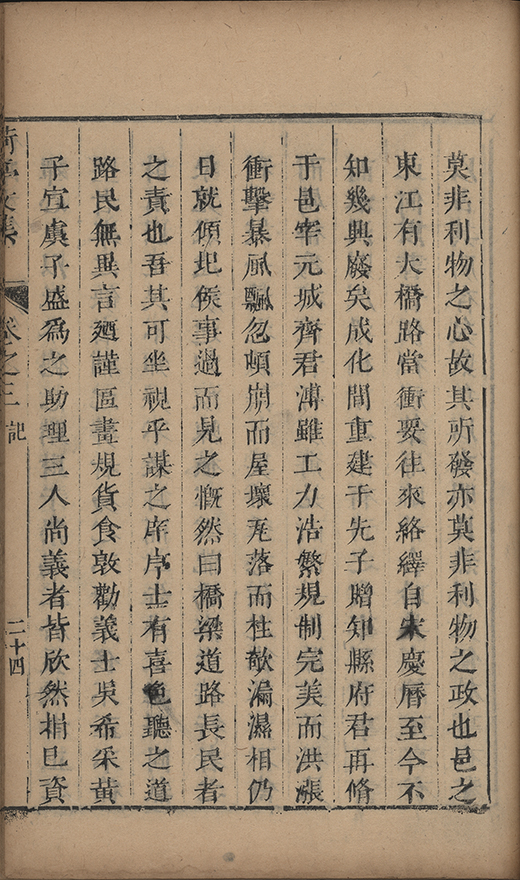 莫非利物之心故其所發亦莫非利物之政也邑之
東江有大橋路當衝要往來絡繹自宋慶曆至今不
知幾興廢矣成化間重建于先子贈知縣府君再脩
于邑宰元城齊君溥雖工力浩繁規制完美而洪漲
衝擊暴風飄忽頓崩而屋壞瓦落而柱欹漏濕相仍
日就傾圯侯事過而見之慨然曰橋梁道路長民者
之責也吾其可坐視乎謀之庠序士有喜色聽之道
路民無異言廼謹區畫規貨食敦勸義士吳希采黃
子宜虞子盛為之助理三人尚義者皆欣然捐己資
文集
卷之三
記
二十四